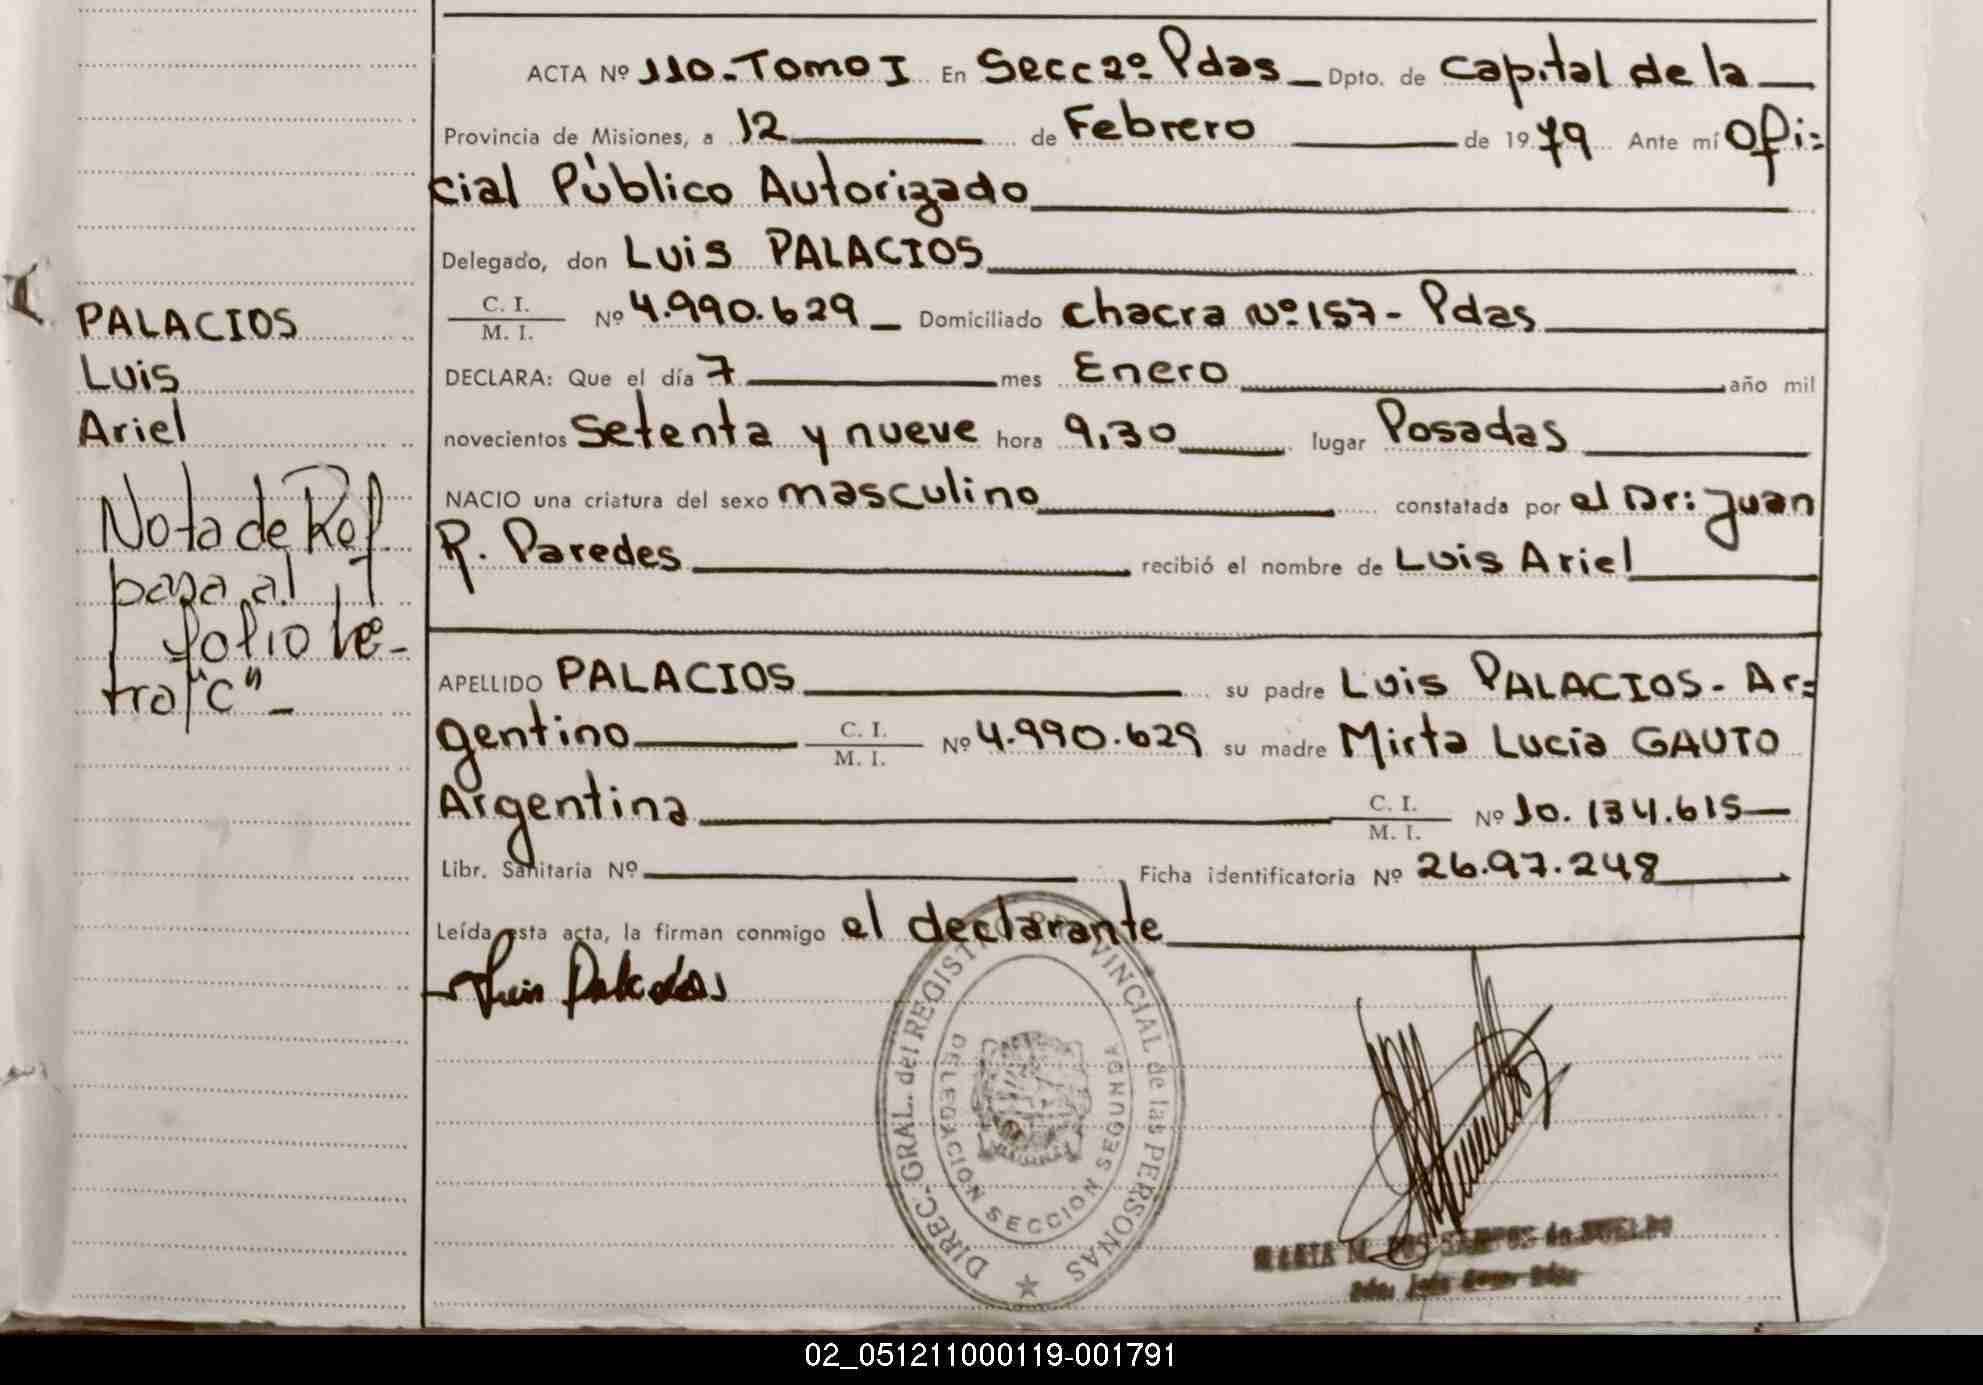 ACTA Nº 110-Tomo I En Secc 2º Pdas Dpto. de Capital de la
Provincia de Misiones, a 12 de Febrero de 1979 Ante mí Ofi=
cial Público Autorizado
Delegado, don Luis PALACIOS
C. I.
M. I.
Nº 4.990.629 Domiciliado chacra Nº 157- Pdas
DECLARA: Que el día 7 mes Enero año mil
novecientos setenta y nueve hora 9,30 lugar Posadas
NACIO una criatura del sexo masculino constatada por el Dr: Juan
R. Paredes recibió el nombre de Luis Ariel
PALACIOS
Luis
Ariel
Nota de Ref
pasa al
folio le-
tra "C" -
APELLIDO PALACIOS su padre Luis PALACIOS- Ar=
gentino C. I. M. I. Nº 4.990.629 su madre Mirta Lucía GAUTO
Argentina C. I. M. I. Nº 10.134.615
Libr. Sanitaria Nº Ficha identificatoria Nº 26.97.248
Leída esta acta, la firman conmigo el declarante
Luis Palacios
DIREC. GRAL. del REGISTRO PROVINCIAL de las PERSONAS
DELEGACION SECCION SEGUNDA
02_051211000119-001791